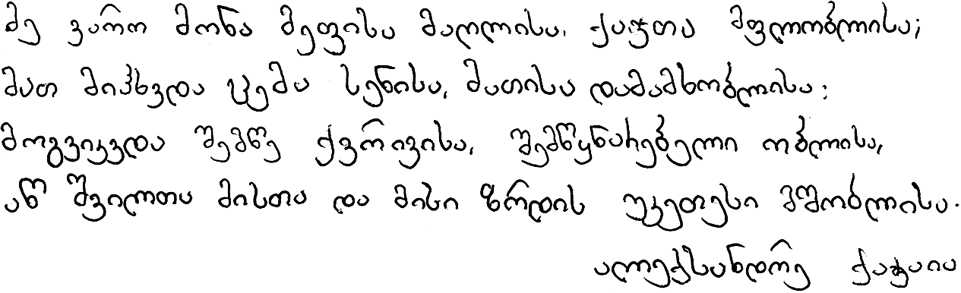 მე ვარო მონა მეფისა მაღლისა, ქაჯთა მფლობლისა;
მათ მიჰხვდა ცემა სენისა, მათისა დამამხობლისა:
მოგვიკვდა შემწე ქვრივისა, შემწყნარებელი ობლისა,
აწ შვილთა მისთა და მისი ზრდის უკეთესი მშობლისა.
ალექსანდრე ქაჯაია